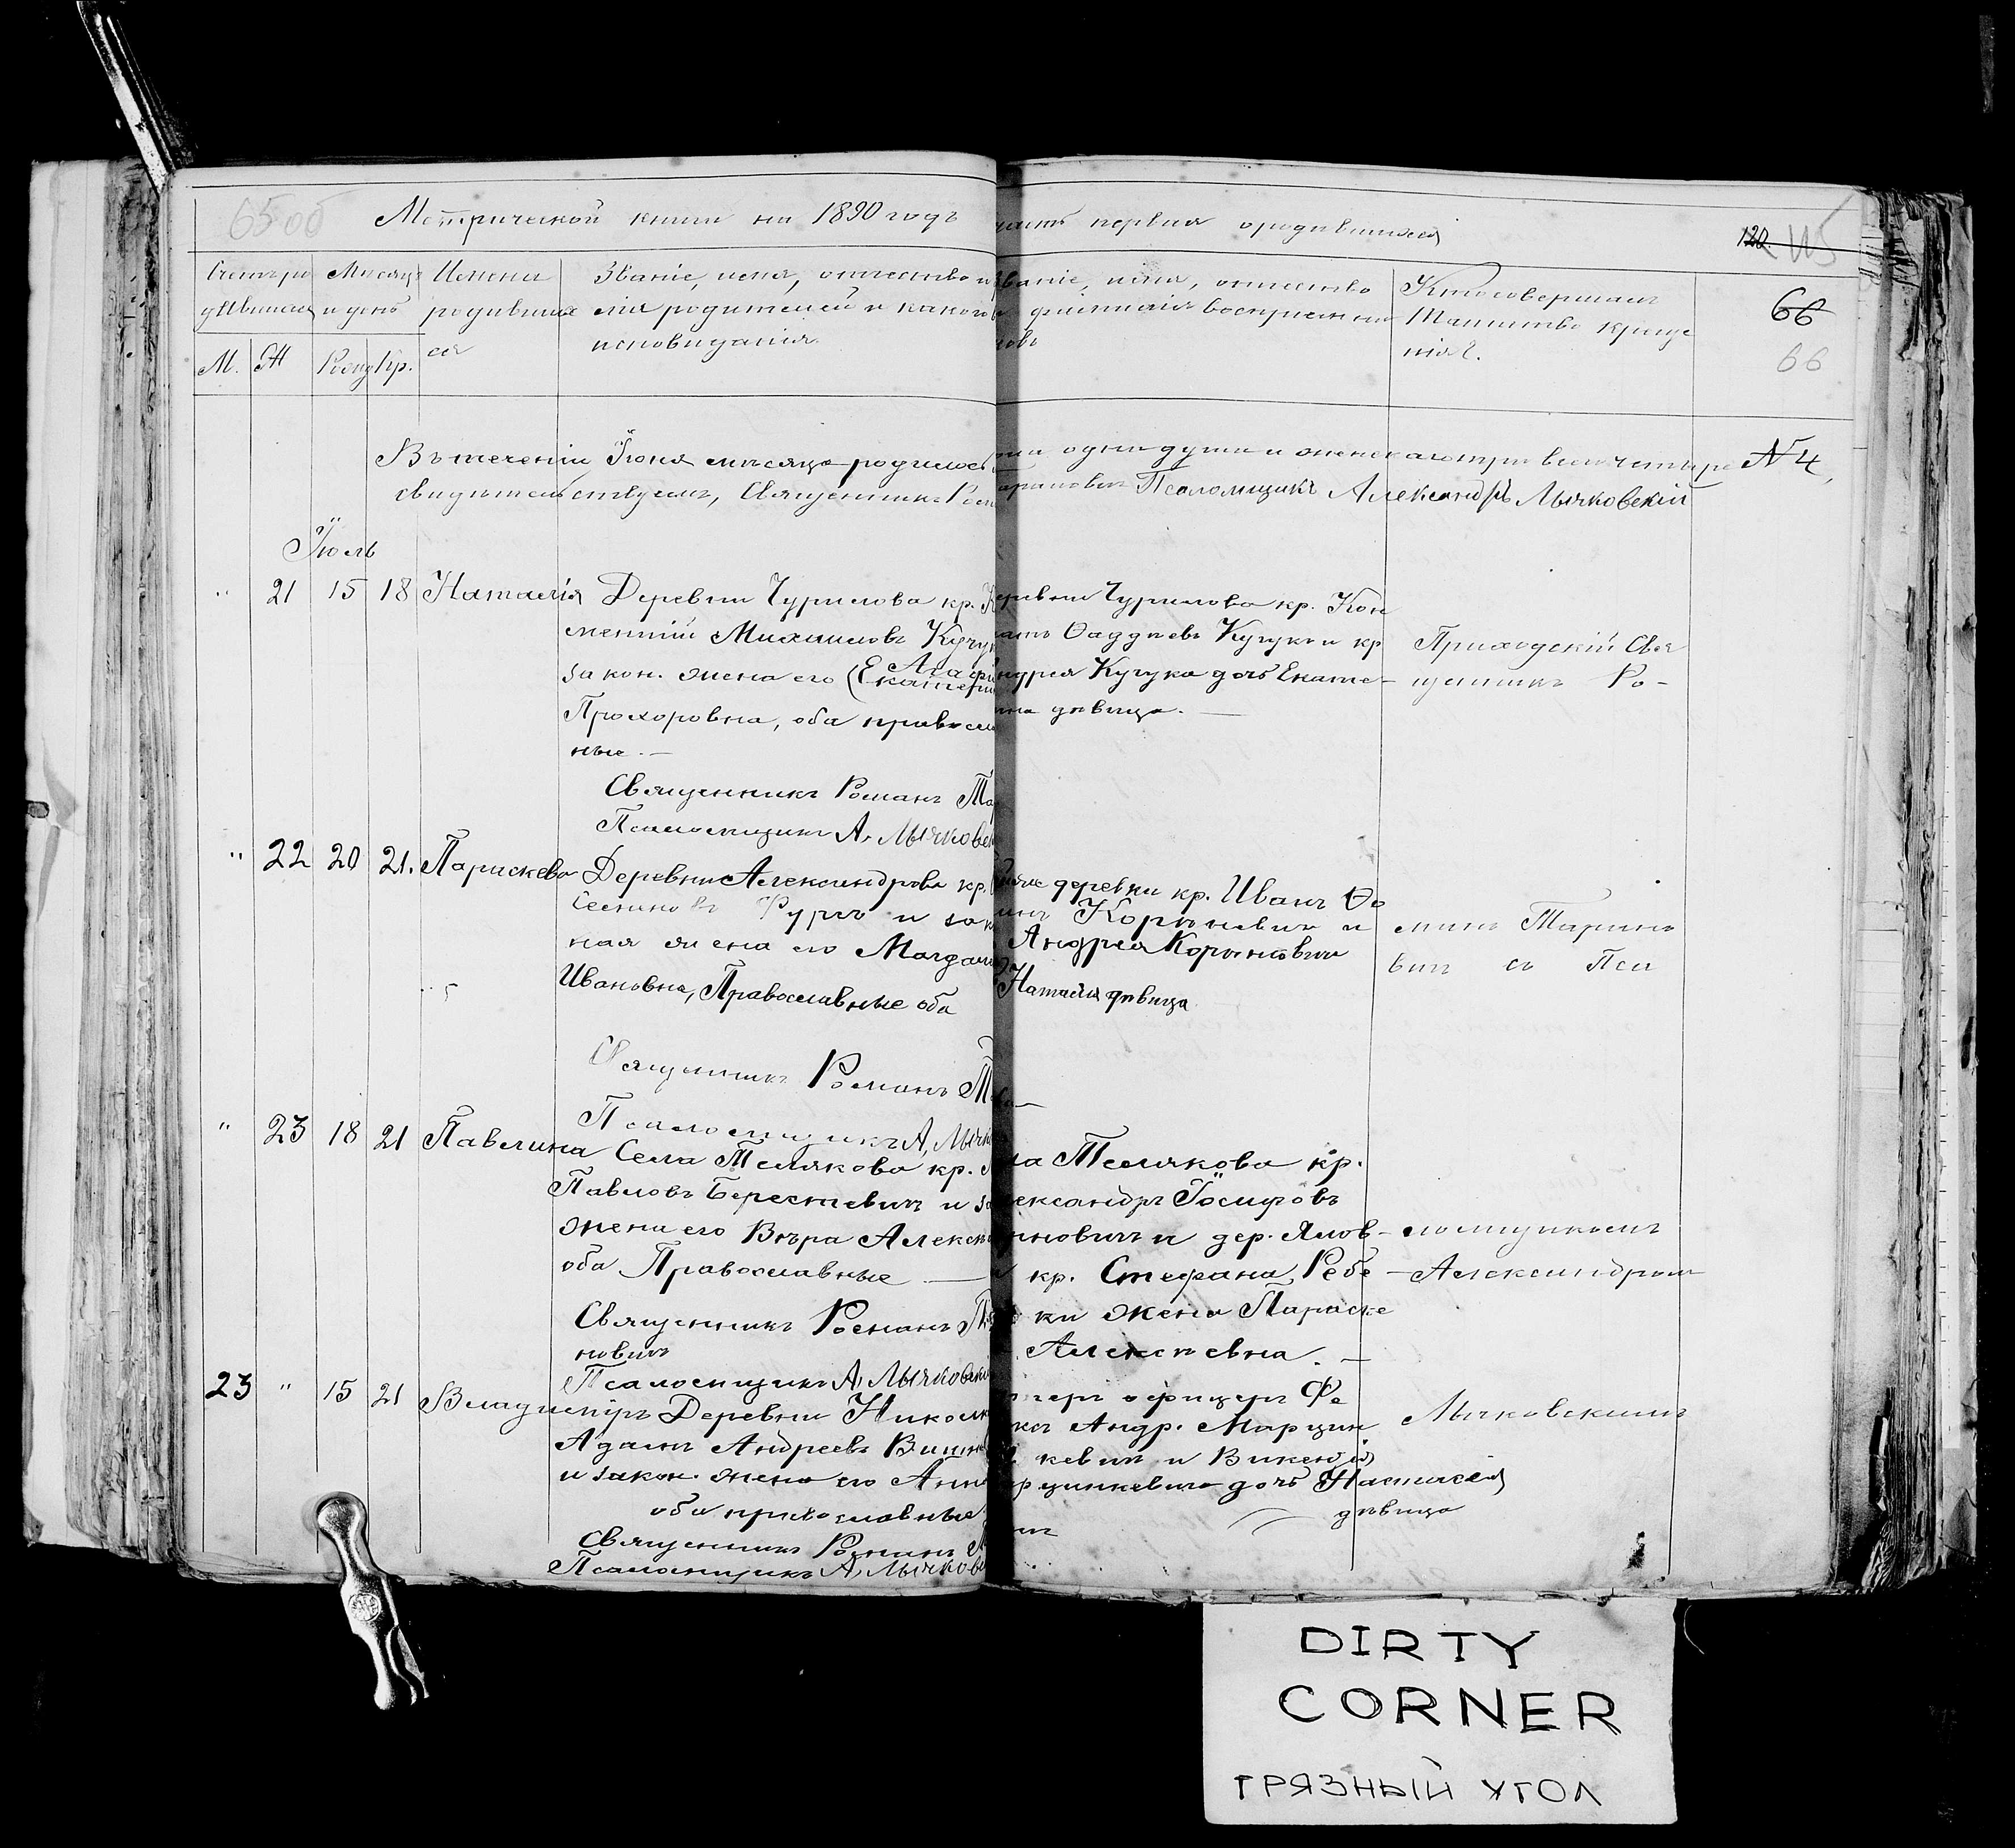 Метрической книги на 1890 годъ
часть первая о родившихся
120. 115
Счетъ ро
дившихся
М. Ж
Мѣсяцъ
и день
Рожд Кр.
Имена
родивших
ся
Званіе, имя, отчество и
лія родителей и какого в
исповѣданія.
званіе, имя, отчество
фамилія воспріемни
ковъ
Кто совершалъ
Таинство креще
нія?.
66
66
Въ теченіи Іюня мѣсяца родилось
одна душа и женскаго три всего четыре № 4,
свидѣтельствуемъ, Священникъ Ром
арановичъ Псаломщикъ Александръ Мычковскій
Іюль
" 21 15 18 Наталія
Деревни Чурилова кр. К
ментій Михаиловъ Кучу
закон. жена его (Екатери Агафи
Прохоровна, оба правосла
ные. —
Священникъ Романъ Та
Псаломщикъ А. Мычковс
еревни Чурилова кр. Кон
Ѳаддѣевъ Кучукъ и кр
Андрея Кучука дочь Екате-
рина дѣвица. —
Приходскій Свя
щенникъ Ро-
" 22 20 21. Параскева
Деревни Александрова кр.
ная жена его Магдали
Ивановна, Православные оба
Священникъ Романъ Т
Псаломщикъ А. Мычк
деревни кр. Иванъ Ѳо
Андрея
Наталія дѣвица
манъ Тарано
вичъ съ Пса
" 23 18 21 Павлина
Села Телякова кр.
Павловъ Берестевичъ и за
жена его Вѣра Алекс
оба Православные —
Священникъ Романъ Та
новичъ
Псаломщикъ А. Мычковскі
ла Телякова кр.
лександръ Іосифовъ
новичъ и дер. Ялов-
кр. Стефана Ребе-
ки жена Параске
Алексѣевна. —
ломщикомъ
Александромъ
23 " 15 21 Владиміръ
Деревни Николь
Адамъ Андреевъ
и закон. жена его Анна
оба православные
Священникъ Романъ
Псаломщикъ А. Мычковс
офицеръ Фе
Андр. Марцин
кевичъ и Викентія
рцинкевича дочь Наталія
дѣвица
Мычковскимъ
DIRTY
CORNER
ГРЯЗНЫЙ УГОЛ